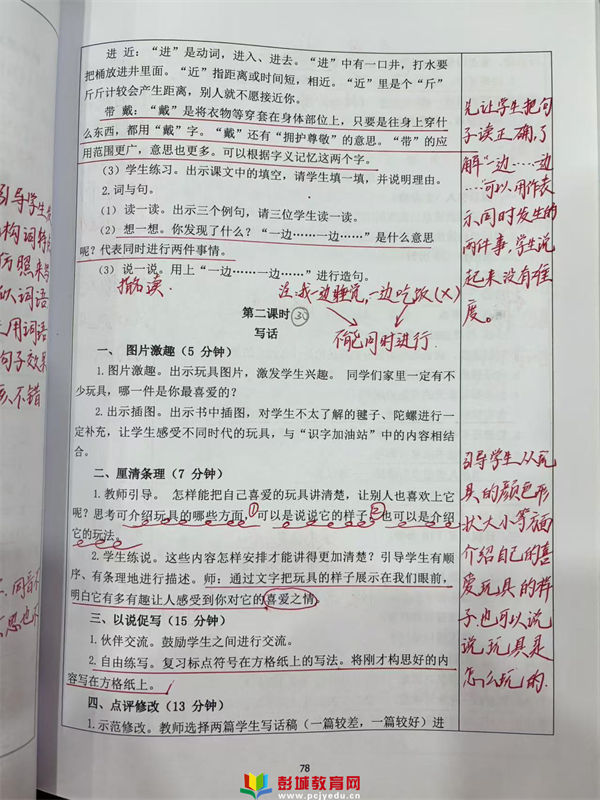 进 近：“进”是动词，进入、进去。“进”中有一口井，打水要
把桶放进井里面。“近”指距离或时间短，相近。“近”里是个“斤”
斤斤计较会产生距离，别人就不愿接近你。
带 戴：“戴”是将衣物等穿套在身体部位上，只要是往身上穿什
么东西，都用“戴”字。“戴”还有“拥护尊敬”的意思。“带”的应
用范围更广，意思也更多。可以根据字义记忆这两个字。
（3）学生练习。出示课文中的填空，请学生填一填，并说明理由。
2.词与句。
（1）读一读。出示三个例句，请三位学生读一读。
（2）想一想。你发现了什么？“一边……一边……”是什么意思
呢？代表同时进行两件事情。
（3）说一说。用上“一边……一边……”进行造句。
指名读.
注:我一边睡觉,一边吃饭(×)
不能同时进行
第二课时
③
写话
一、 图片激趣（5 分钟）
1.图片激趣。出示玩具图片，激发学生兴趣。 同学们家里一定有不
少玩具，哪一件是你最喜爱的？
2.出示插图。出示书中插图，对学生不太了解的毽子、陀螺进行一
定补充，让学生感受不同时代的玩具，与“识字加油站”中的内容相结
合。
二、厘清条理（7 分钟）
1.教师引导。 怎样能把自己喜爱的玩具讲清楚，让别人也喜欢上它
呢？思考可介绍玩具的哪些方面，可以是说说它的样子，也可以是介绍
①
②
它的玩法。
2.学生练说。这些内容怎样安排才能讲得更加清楚？引导学生有顺
序、有条理地进行描述。师：通过文字把玩具的样子展示在我们眼前，
明白它有多有趣让人感受到你对它的喜爱之情
三、以说促写（15 分钟）
1.伙伴交流。鼓励学生之间进行交流。
2.自由练写。复习标点符号在方格纸上的写法。将刚才构思好的内
容写在方格纸上。
四、点评修改（13 分钟）
1.示范修改。教师选择两篇学生写话稿（一篇较差，一篇较好）进
先让学生把句
子读正确,了
解“一边……一边
…”可以用作表
示同时发生的
两件事,学生说
起来没有难
度。
引导学生从玩
具的颜色形
状大小等方面
介绍自己的喜
爱玩具的样
子也可以说
说玩具是
怎么玩的.
引导学生
构词特
仿照来
以词语
用词语
句子效果
不错
78
彭城教育网
www.pcjyedu.cn